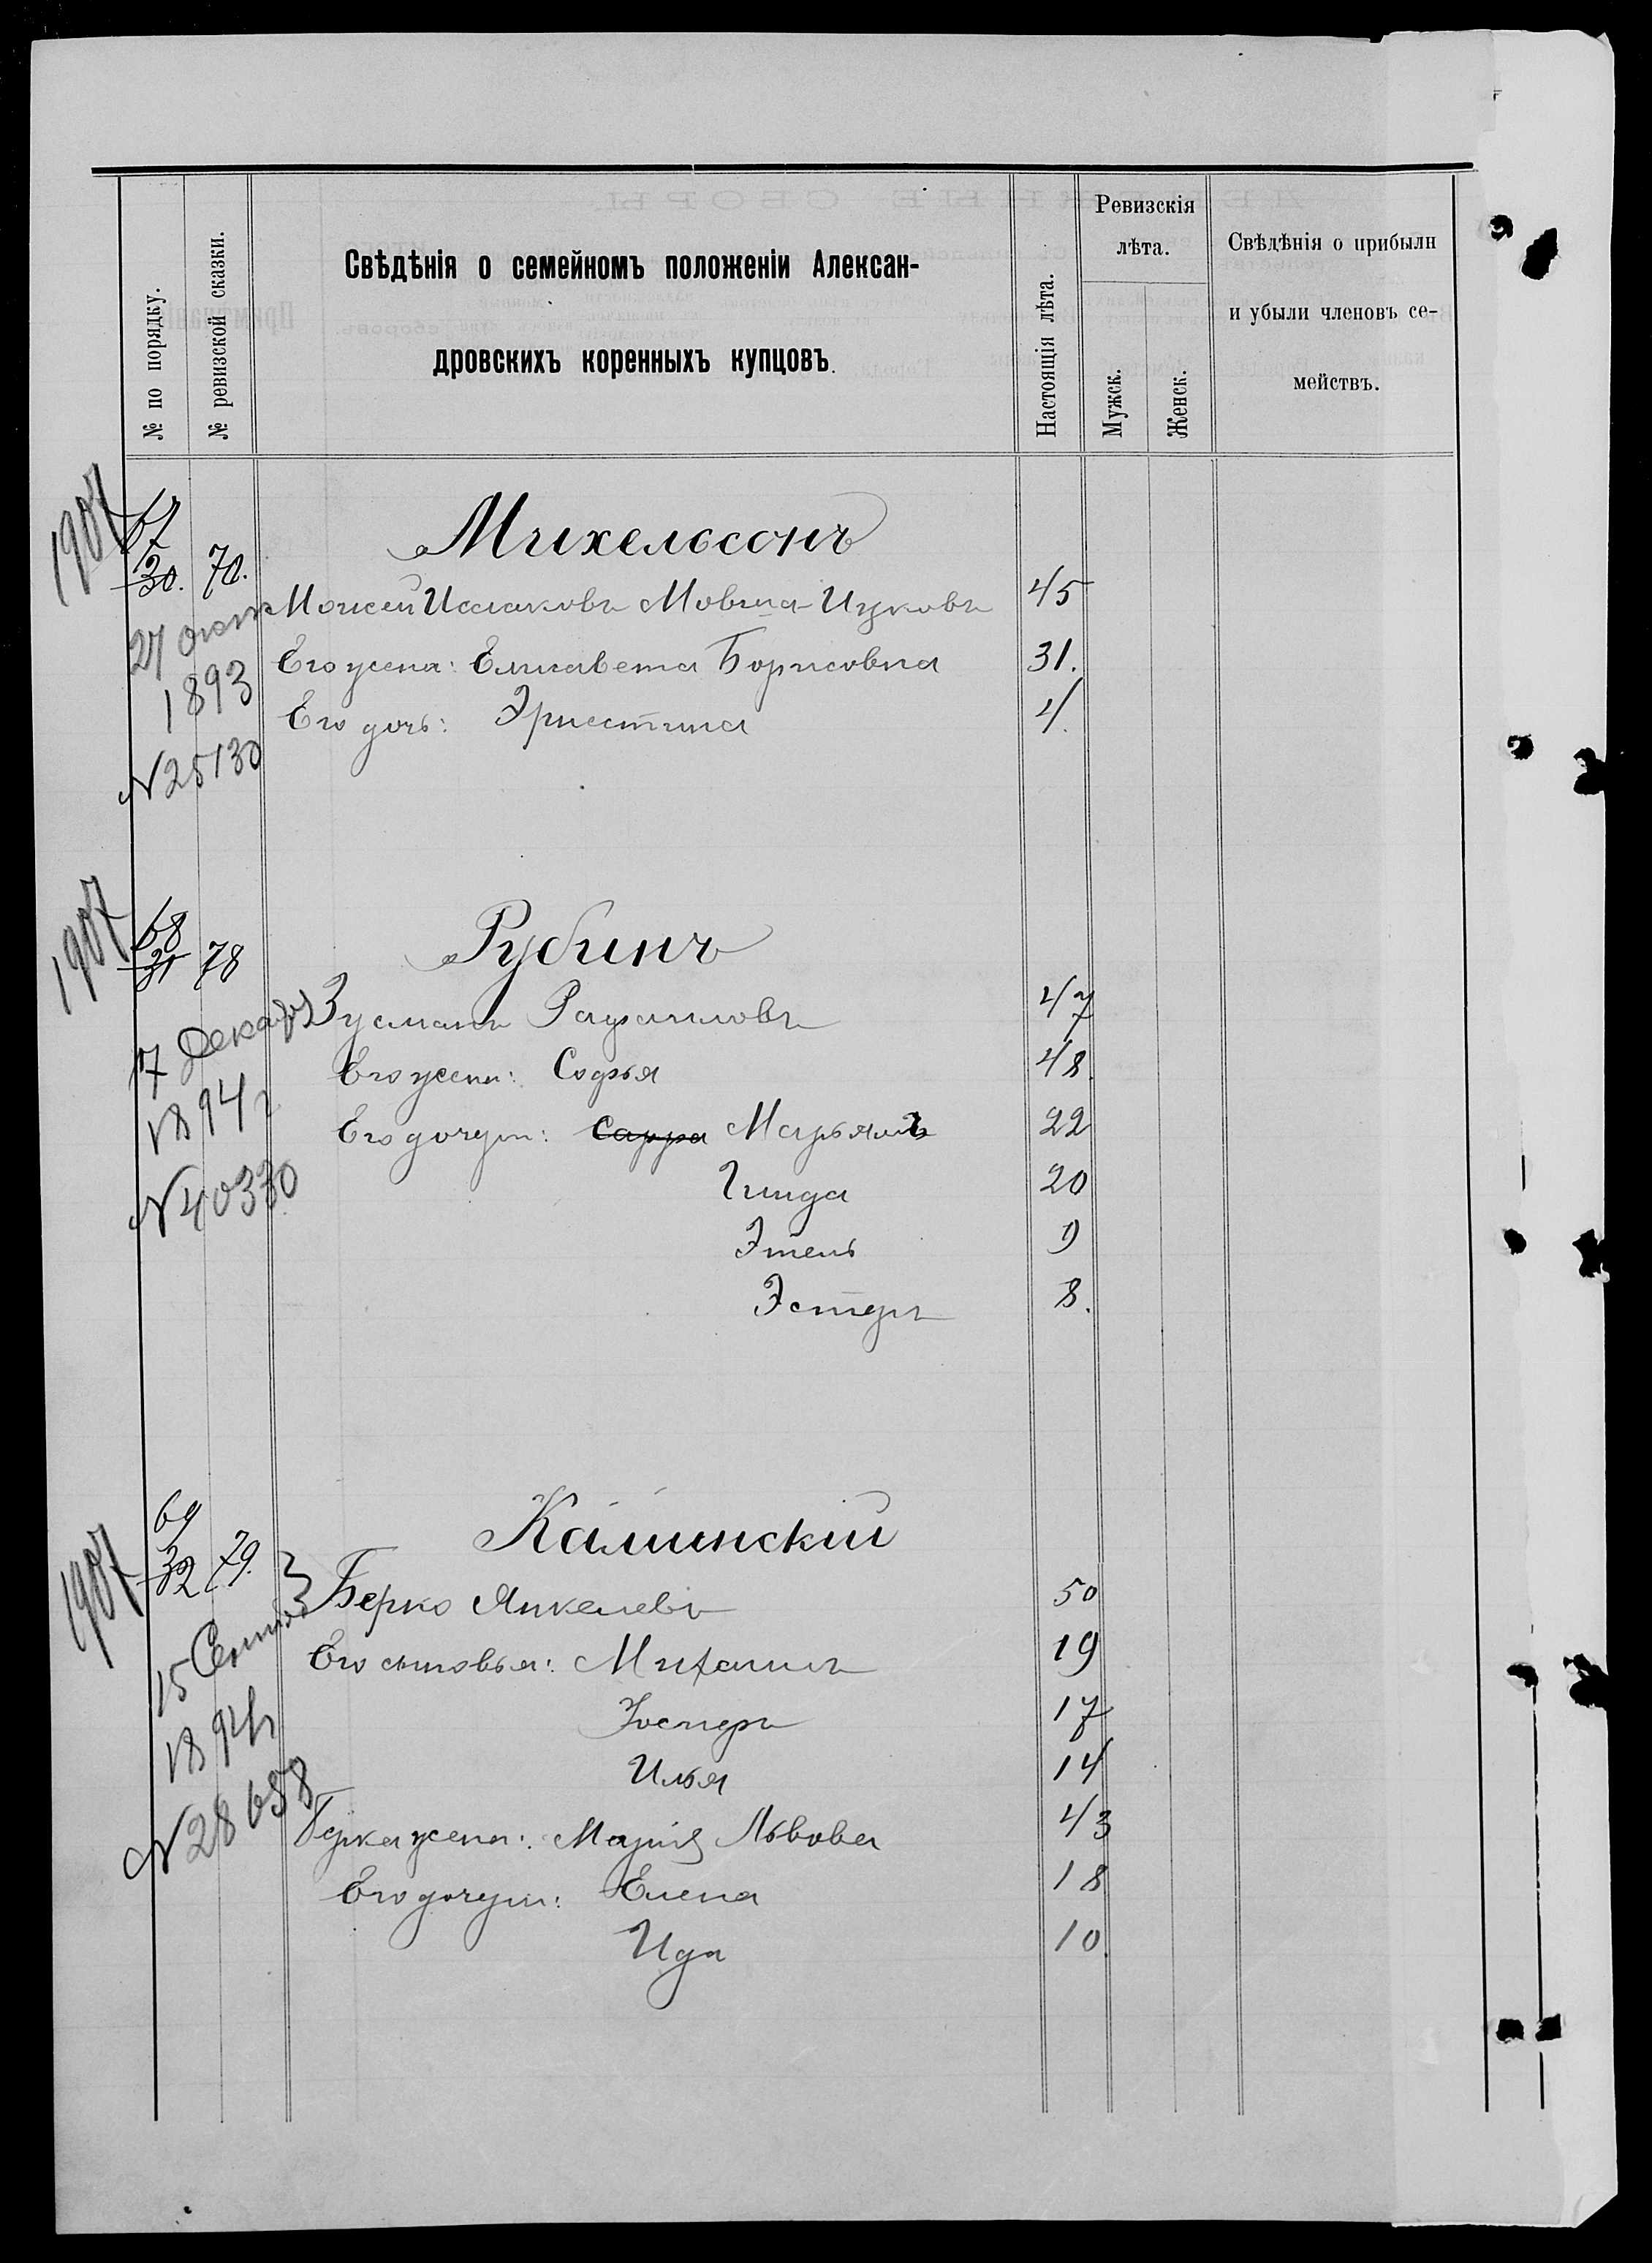 № по порядку.
№ ревизской сказки.
Свѣдѣнія о семейномъ положеніи Алексан-
дровскихъ коренныхъ купцовъ.
Настоящія лѣта.
Ревизскія
лѣта.
Мужск.
Женск.
Свѣдѣнія о прибыли
и убыли членовъ се-
мействъ.
1907
67
30. 70.
Михельсонъ
Моисей Исааковъ Мовша-Ицковъ 45
27
1893
N 25130
Его жена: Елисавета Борисовна 31.
Его дочь: Эрнестина 4.
1907
68
31 78
Рубинъ
Зусманъ Рафаиловъ 47
7 Декабр
1894 г
N 40330
Его жена: Софья 48.
Его дочери: Сарра Марьямъ 22
Гинда 20
Этель 9
Эстеръ 8.
1907
69
32 79.
Калминскій
Берко Янкелевъ 50
15 Сентяб
1894 г
N 28658
Его сыновья: Михаилъ 19
17
Илья 14
Берка жена: Марія Львова 43
Его дочери: Елена 18
Ида 10.